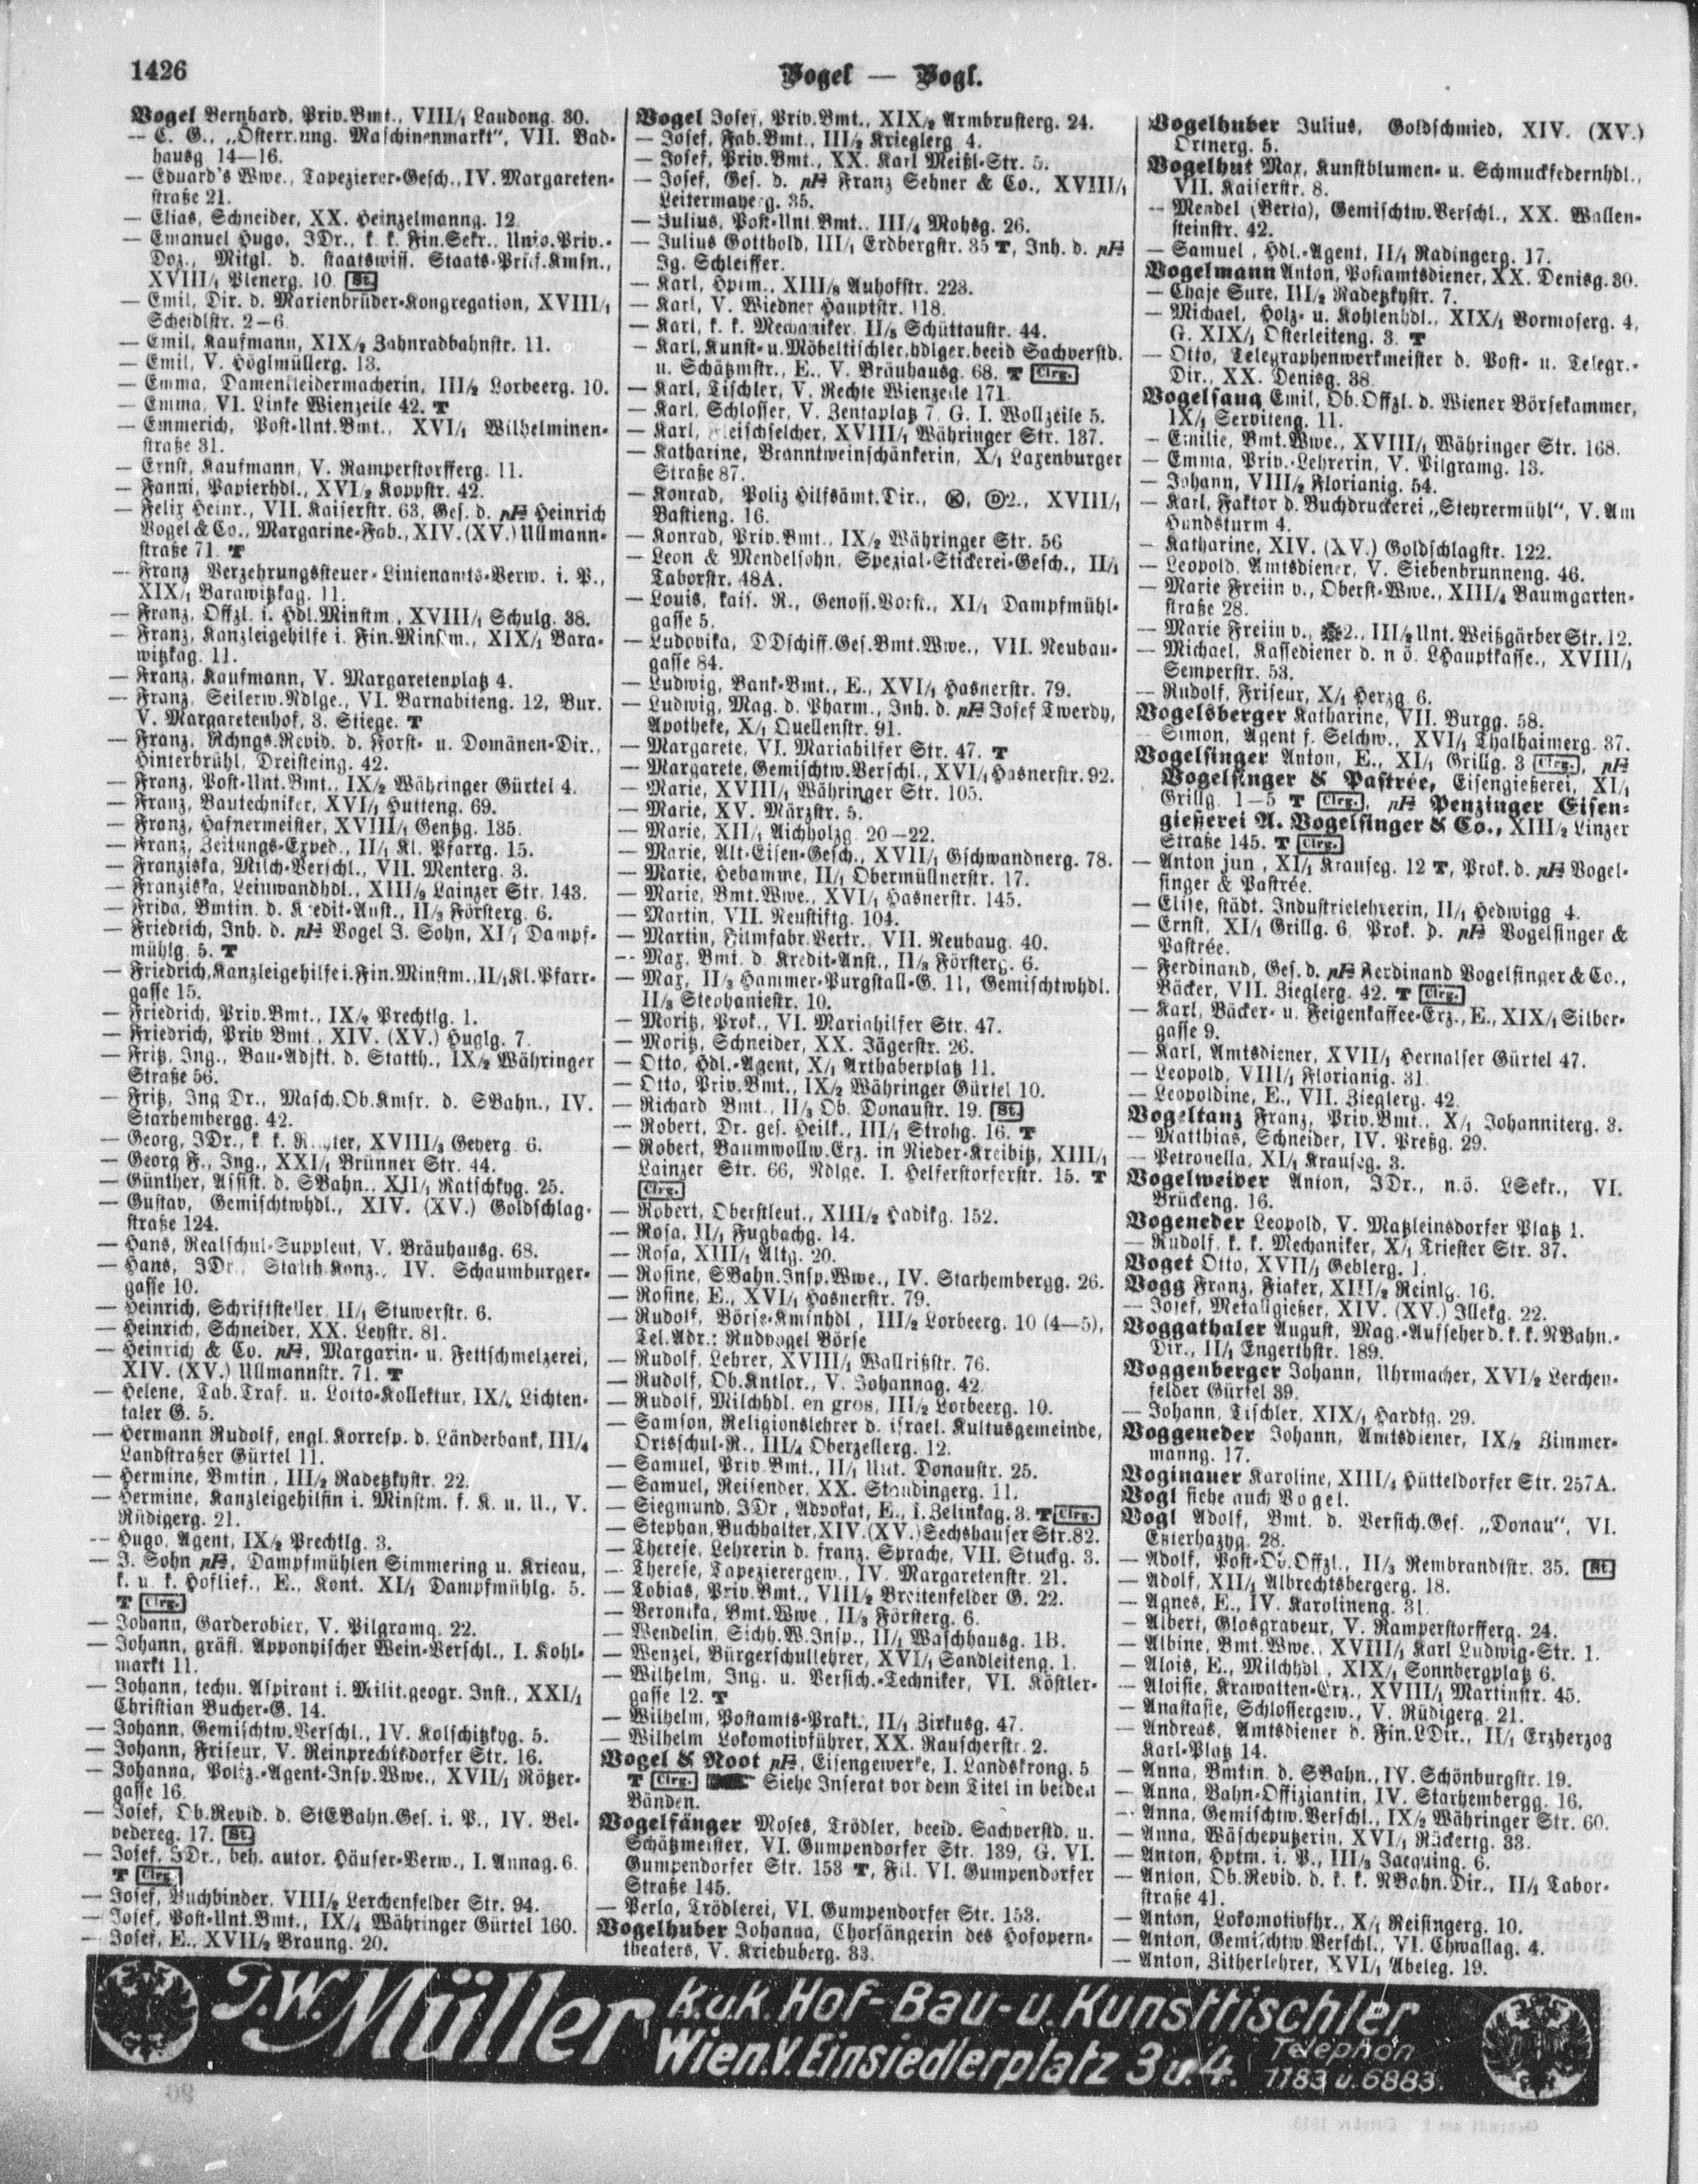 1426
Vogel — Vogl.
Vogel Bernhard, Priv.Bmt., VIII/1 Laudong. 30.
— C. G., „Österr.ung. Maschinenmarkt“, VII. Bad-
hausg 14—16.
— Eduard's Wwe., Tapezierer-Gesch., IV. Margareten-
straße 21.
— Elias, Schneider, XX. Heinzelmanng. 12
— Emanuel Hugo, JDr., k. k. Fin.Sekr., Univ.Priv.-
Doz., Mitgl. d. staatswiss. Staats-Prüf.Kmsn.,
XVIII/1 Plenerg. 10. St.
— Emil, Dir. d. Marienbrüder-Kongregation, XVIII/1
Scheidlstr. 2—6
— Emil, Kaufmann, XIX/2 Zahnradbahnstr. 11.
— Emil, V. Höglmüllerg. 13.
— Emma, Damenkleidermacherin, III/2 Lorbeerg. 10.
— Emma, VI. Linke Wienzeile 42. T
— Emmerich, Post-Unt.Bmt., XVI/1 Wilhelminen-
straße 31.
— Ernst, Kaufmann, V. Ramperstorfferg. 11.
— Fanni, Papierhdl., XVI/2 Koppstr. 42.
— Felix Heinr., VII. Kaiserstr. 63, Ges. d. pF Heinrich
Vogel & Co., Margarine-Fab., XIV. (XV.) Ullmann-
straße 71. T
— Franz Verzehrungssteuer-Linienamts-Verw. i. P.,
XIX/1 Barawitzkag. 11.
— Franz, Offzl. i. Hdl.Minstm., XVIII/1 Schulg. 38.
— Franz, Kanzleigehilfe i. Fin.Minstm., XIX/1 Bara-
witzkag. 11.
— Franz, Kaufmann, V. Margaretenplatz 4.
— Franz, Seilerw.Ndlge., VI. Barnabiteng. 12, Bur.
V. Margaretenhof, 3. Stiege. T
— Franz, Rchngs.Revid. d. Forst- u. Domänen-Dir.,
Hinterbrühl, Dreisteing. 42.
— Franz, Post-Unt.Bmt., IX/2 Währinger Gürtel 4.
— Franz, Bautechniker, XVI/1 Hutteng. 69.
— Franz, Hafnermeister, XVIII/1 Gentzg. 135.
— Franz, Zeitungs-Exped., II/1 Kl. Pfarrg. 15.
— Franziska, Milch-Verschl., VII. Menterg. 3.
— Franziska, Leinwandhdl., XIII/2 Lainzer Str. 143.
— Frida, Bmtin. d. Kredit-Anst., II/3 Försterg. 6.
— Friedrich, Inh. d. pF Vogel J. Sohn, XI/1 Dampf-
mühlg. 5. T
— Friedrich, Kanzleigehilfe i. Fin.Minstm., II/1 Kl. Pfarr-
gasse 15.
— Friedrich, Priv.Bmt., IX/2 Prechtlg. 1.
— Friedrich, Priv Bmt., XIV. (XV.) Huglg. 7.
— Fritz, Ing., Bau-Adjkt. d. Statth., IX/2 Währinger
Straße 56.
— Fritz, Ing Dr., Masch.Ob.Kmsr. d. SBahn., IV.
Starhembergg. 42.
— Georg, JDr., k. k. XVIII/3 Geyerg. 6.
— Georg F., Ing., XXI/1 Brünner Str. 44.
— Günther, Assist. d. SBahn., XII/1 Ratschkyg. 25.
— Gustav, Gemischtwhdl., XIV. (XV.) Goldschlag-
straße 124.
— Hans, Realschul-Supplent, V. Bräuhausg. 68.
— Hans, JDr., Statth.Konz., IV. Schaumburger-
gasse 10.
— Heinrich, Schriftsteller, II/1 Stuwerstr. 6.
— Heinrich, Schneider, XX. Leystr. 81.
— Heinrich & Co. pF, Margarin- u. Fettschmelzerei,
XIV. (XV.) Ullmannstr. 71. T
— Helene, Tab.Traf. u. Lotto-Kollektur, IX/4 Lichten-
taler G. 5.
— Hermann Rudolf, engl. Korresp. d. Länderbank, III/4
Landstraßer Gürtel 11.
— Hermine, Bmtin, III/2 Radetzkystr. 22.
— Hermine, Kanzleigehilfin i. Minstm. f. K. u. U., V.
Rüdigerg. 21.
— Hugo, Agent, IX/2 Prechtlg. 3.
— J. Sohn pF, Dampfmühlen Simmering u. Krieau,
k. u. k. Hoflief., E., Kont. XI/1 Dampfmühlg. 5.
T Clrg.
— Johann, Garderobier, V. Pilgramg. 22.
— Johann, gräfl. Apponyischer Wein-Verschl., I. Kohl-
markt 11.
— Johann, techn. Aspirant i. Milit.geogr. Inst., XXI/1
Christian Bucher-G. 14.
— Johann, Gemischtw.Verschl., IV. Kolschitzkyg. 5.
— Johann, Friseur, V. Reinprechtsdorfer Str. 16.
— Johanna, Poliz.-Agent-Insp.Wwe., XVII/1 Rötzer-
gasse 16.
— Josef, Ob.Revid. d. StEBahn.Ges. i. P., IV. Bel-
vedereg. 17. St.
— Josef, JDr., beh. autor. Häuser-Verw., I. Annag. 6.
T Clrg.
— Josef, Buchbinder, VIII/2 Lerchenfelder Str. 94.
— Josef, Post-Unt.Bmt., IX/4 Währinger Gürtel 160.
— Josef, E., XVII/2 Braung. 20.
Vogel Josef, Priv.Bmt., XIX/2 Armbrusterg. 24.
— Josef, Fab.Bmt., III/2 Krieglerg 4.
— Josef, Priv.Bmt., XX. Karl Meißl-Str. 5.
— Josef, Ges. d. pF Franz Sehner & Co., XVIII/1
Leitermayerg. 35.
— Julius, Post-Unt.Bmt., III/4 Mohsg. 26.
— Julius Gotthold, III/1 Erdbergstr. 35 T, Inh. d. pF
Ig. Schleiffer.
— Karl, Hptm., XIII/8 Auhofstr. 223.
— Karl, V. Wiedner Hauptstr. 118.
— Karl, k. k. Mechaniker, II/8 Schüttaustr. 44.
— Karl, Kunst- u. Möbeltischler, hdlger. beeid Sachverstd.
u. Schätzmstr., E., V. Bräuhausg. 68. T Clrg.
— Karl, Tischler, V. Rechte Wienzeile 171
— Karl, Schlosser, V. Zentaplatz 7, G. I. Wollzeile 5.
— Karl, Fleischselcher, XVIII/1 Währinger Str. 137.
— Katharine, Branntweinschänkerin, X/1 Laxenburger
Straße 87.
— Konrad, Poliz Hilfsämt.Dir., Ⓚ, Ⓓ2., XVIII/1
Bastieng. 16.
— Konrad, Priv.Bmt., IX/2 Währinger Str. 56
— Leon & Mendelsohn, Spezial-Stickerei-Gesch., II/1
Taborstr. 48A.
— Louis, kais. R., Genoss.Vorst., XI/1 Dampfmühl-
gasse 5.
— Ludovika, DDschiff.Ges.Bmt.Wwe., VII. Neubau-
gasse 84.
— Ludwig, Bank-Bmt., E., XVI/1 Hasnerstr. 79.
— Ludwig, Mag. d. Pharm., Inh. d. pF Josef Twerdy,
Apotheke, X/1 Quellenstr. 91.
— Margarete, VI. Mariahilfer Str. 47. T
— Margarete, Gemischtw.Verschl., XVI/1 Hasnerstr. 92.
— Marie, XVIII/1 Währinger Str. 105.
— Marie, XV. Märzstr. 5.
— Marie, XII/1 Aichholzg. 20—22.
— Marie, Alt-Eisen-Gesch., XVII/1 Gschwandnerg. 78.
— Marie, Hebamme, II/1 Obermüllnerstr. 17.
— Marie, Bmt.Wwe., XVI/1 Hasnerstr. 145.
— Martin, VII. Neustiftg. 104.
— Martin, Filmfabr.Vertr., VII. Neubaug. 40.
— Max, Bmt. d. Kredit-Anst., II/3 Försterg. 6.
— Max, II/3 Hammer-Purgstall-G. 11, Gemischtwhdl.
II/3 Stephaniestr. 10.
— Moritz, Prok., VI. Mariahilfer Str. 47.
— Moritz, Schneider, XX. Jägerstr. 26.
— Otto, Hdl.-Agent, X/1 Arthaberplatz 11.
— Otto, Priv.Bmt., IX/2 Währinger Gürtel 10.
— Richard Bmt., II/3 Ob. Donaustr. 19. St.
— Robert, Dr. ges. Heilk., III/1 Strohg. 16. T
— Robert, Baumwollw.Erz. in Nieder-Kreibitz, XIII/1
Lainzer Str. 66, Ndlge. I. Helferstorferstr. 15. T
Clrg.
— Robert, Oberstleut., XIII/2 Hadikg. 152.
— Rosa, II/1 Fugbachg. 14.
— Rosa, XIII/1 Altg. 20.
— Rosine, SBahn.Insp.Wwe., IV. Starhembergg. 26.
— Rosine, E., XVI/1 Hasnerstr. 79.
— Rudolf, Börse-Kmsnhdl., III/2 Lorbeerg. 10 (4—5),
Tel.Adr.: Rudvogel Börse
— Rudolf, Lehrer, XVIII/1 Wallrißstr. 76.
— Rudolf, Ob.Kntlor., V. Johannag. 42.
— Rudolf, Milchhdl. en gros, III/2 Lorbeerg. 10.
— Samson, Religionslehrer d. israel. Kultusgemeinde,
Ortsschul-R., III/4 Oberzellerg. 12.
— Samuel, Priv.Bmt., II/1 Unt. Donaustr. 25.
— Samuel, Reisender, XX. Staudingerg. 11.
— Siegmund, JDr., Advokat, E., I. Zelinkag. 3. T Clrg.
— Stephan, Buchhalter, XIV. (XV.) Sechshauser Str. 82.
— Therese, Lehrerin d. franz. Sprache, VII. Stuckg. 3.
— Therese, Tapezierergew., IV. Margaretenstr. 21.
— Tobias, Priv.Bmt., VIII/2 Breitenfelder G. 22.
— Veronika, Bmt.Wwe., II/3 Försterg. 6.
— Wendelin, Sichh.W.Insp., II/1 Waschhausg. 1B.
— Wenzel, Bürgerschullehrer, XVI/1 Sandleiteng. 1.
— Wilhelm, Ing. u. Versich.-Techniker, VI. Köstler-
gasse 12. T
— Wilhelm, Postamts-Prakt., II/1 Zirkusg. 47.
— Wilhelm Lokomotivführer, XX. Rauscherstr. 2.
Vogel & Noot pF, Eisengewerke, I. Landskrong. 5
T Clrg. Siehe Inserat vor dem Titel in beiden
Bänden.
Vogelfänger Moses, Trödler, beeid. Sachverstd. u.
Schätzmeister, VI. Gumpendorfer Str. 139, G. VI.
Gumpendorfer Str. 153 T, Fil. VI. Gumpendorfer
Straße 145.
— Perla, Trödlerei, VI. Gumpendorfer Str. 153.
Vogelhuber Johanna, Chorsängerin des Hofopern-
theaters, V. Kriehuberg. 33.
Vogelhuber Julius, Goldschmied, XIV. (XV.)
Ortnerg. 5.
Vogelhut Max, Kunstblumen- u. Schmuckfedernhdl.,
VII. Kaiserstr. 8.
— Mendel (Berta), Gemischtw.Verschl., XX. Wallen-
steinstr. 42.
— Samuel, Hdl.-Agent, II/1 Radingerg. 17.
Vogelmann Anton, Postamtsdiener, XX. Denisg. 30.
— Chaje Sure, III/2 Radetzkystr. 7.
— Michael, Holz- u. Kohlenhdl., XIX/1 Vormoserg. 4,
G. XIX/1 Osterleiteng. 3. T
— Otto, Telegraphenwerkmeister d. Post- u. Telegr.-
Dir., XX. Denisg. 38.
Vogelsang Emil, Ob.Offzl. d. Wiener Börsekammer,
IX/1 Serviteng. 11.
— Emilie, Bmt.Wwe., XVIII/1 Währinger Str. 168.
— Emma, Priv.-Lehrerin, V. Pilgramg. 13.
— Johann, VIII/2 Florianig. 54.
— Karl, Faktor d. Buchdruckerei „Steyrermühl“, V. Am
Hundsturm 4.
— Katharine, XIV. (XV.) Goldschlagstr. 122.
— Leopold, Amtsdiener, V. Siebenbrunneng. 46.
— Marie Freiin v., Oberst-Wwe., XIII/4 Baumgarten-
straße 28.
— Marie Freiin v., 2., III/2 Unt. Weißgärber Str. 12.
— Michael, Kassediener d. n ö. LHauptkasse., XVIII/1
Semperstr. 53.
— Rudolf, Friseur, X/1 Herzg. 6.
Vogelsberger Katharine, VII. Burgg. 58.
— Simon, Agent f. Selchw., XVI/1 Thalhaimerg. 37.
Vogelsinger Anton, E., XI/1 Grillg. 3 Clrg., pF
Vogelsinger & Pastrée, Eisengießerei, XI/1
Grillg. 1—5 T Clrg., pF Penzinger Eisen-
gießerei A. Vogelsinger & Co., XIII/2 Linzer
Straße 145. T Clrg.
— Anton jun., XI/1 Krauseg. 12 T, Prok. d. pF Vogel-
singer & Pastrée.
— Elise, städt. Industrielehrerin, II/1 Hedwigg 4.
— Ernst, XI/1 Grillg. 6, Prok. d. pF Vogelsinger &
Pastrée.
— Ferdinand, Ges. d. pF Ferdinand Vogelsinger & Co.,
Bäcker, VII. Zieglerg. 42. T Clrg.
— Karl, Bäcker- u. Feigenkaffee-Erz., E., XIX/1 Silber-
gasse 9.
— Karl, Amtsdiener, XVII/1 Hernalser Gürtel 47.
— Leopold, VIII/1 Florianig. 31
— Leopoldine, E., VII. Zieglerg. 42.
Vogeltanz Franz, Priv.Bmt., X/1 Johanniterg. 3.
— Matthias, Schneider, IV. Preßg. 29.
— Petronella, XI/1 Krauseg. 3.
Vogelweider Anton, JDr., n.ö. LSekr., VI.
Brückeng. 16.
Vogeneder Leopold, V. Matzleinsdorfer Platz 1.
— Rudolf, k. k. Mechaniker, X/1 Triester Str. 37.
Voget Otto, XVII/1 Geblerg. 1.
Vogg Franz, Fiaker, XIII/2 Reinlg. 16.
— Josef, Metallgießer, XIV. (XV.) Illekg. 22.
Voggathaler August, Mag.-Aufseher d. k. k. NBahn.-
Dir., II/1 Engerthstr. 189.
Voggenberger Johann, Uhrmacher, XVI/2 Lerchen-
felder Gürtel 39.
— Johann, Tischler, XIX/1 Hardtg. 29.
Voggeneder Johann, Amtsdiener, IX/2 Zimmer-
manng. 17.
Voginauer Karoline, XIII/4 Hütteldorfer Str. 257A.
Vogl siehe auch Vogel.
Vogl Adolf, Bmt. d. Versich.Ges. „Donau“, VI.
Eszterhazyg. 28.
— Adolf, Post-Ob.Offzl., II/3 Rembrandtstr. 35. St.
— Adolf, XII/1 Albrechtsbergerg. 18.
— Agnes, E., IV. Karolineng. 31
— Albert, Glasgraveur, V. Ramperstorfferg. 24.
— Albine, Bmt.Wwe., XVIII/1 Karl Ludwig-Str. 1.
— Alois, E., Milchhdl., XIX/1 Sonnbergplatz 6.
— Aloisie, Krawatten-Erz., XVIII/1 Martinstr. 45.
— Anastasie, Schlossergew., V. Rüdigerg. 21.
— Andreas, Amtsdiener d. Fin.LDir., II/1 Erzherzog
Karl-Platz 14.
— Anna, Bmtin. d. SBahn., IV. Schönburgstr. 19.
— Anna, Bahn-Offiziantin, IV. Starhembergg. 16.
— Anna, Gemischtw.Verschl., IX/2 Währinger Str. 60.
— Anna, Wäscheputzerin, XVI/1 Rückertg. 33.
— Anton, Hptm. i. P., III/3 Jacquing. 6.
— Anton, Ob.Revid. d. k. k. NBahn.Dir., II/1 Tabor-
straße 41.
— Anton, Lokomotivfhr., X/1 Reisingerg. 10.
— Anton, Gemischtw.Verschl., VI. Chwallag. 4.
— Anton, Zitherlehrer, XVI/1 Abeleg. 19.
J.W. Müller
k.u.k. Hof-Bau-u. Kunsttischler
Wien. V. Einsiedlerplatz 3 u. 4.
Telephon
1183 u. 6883.